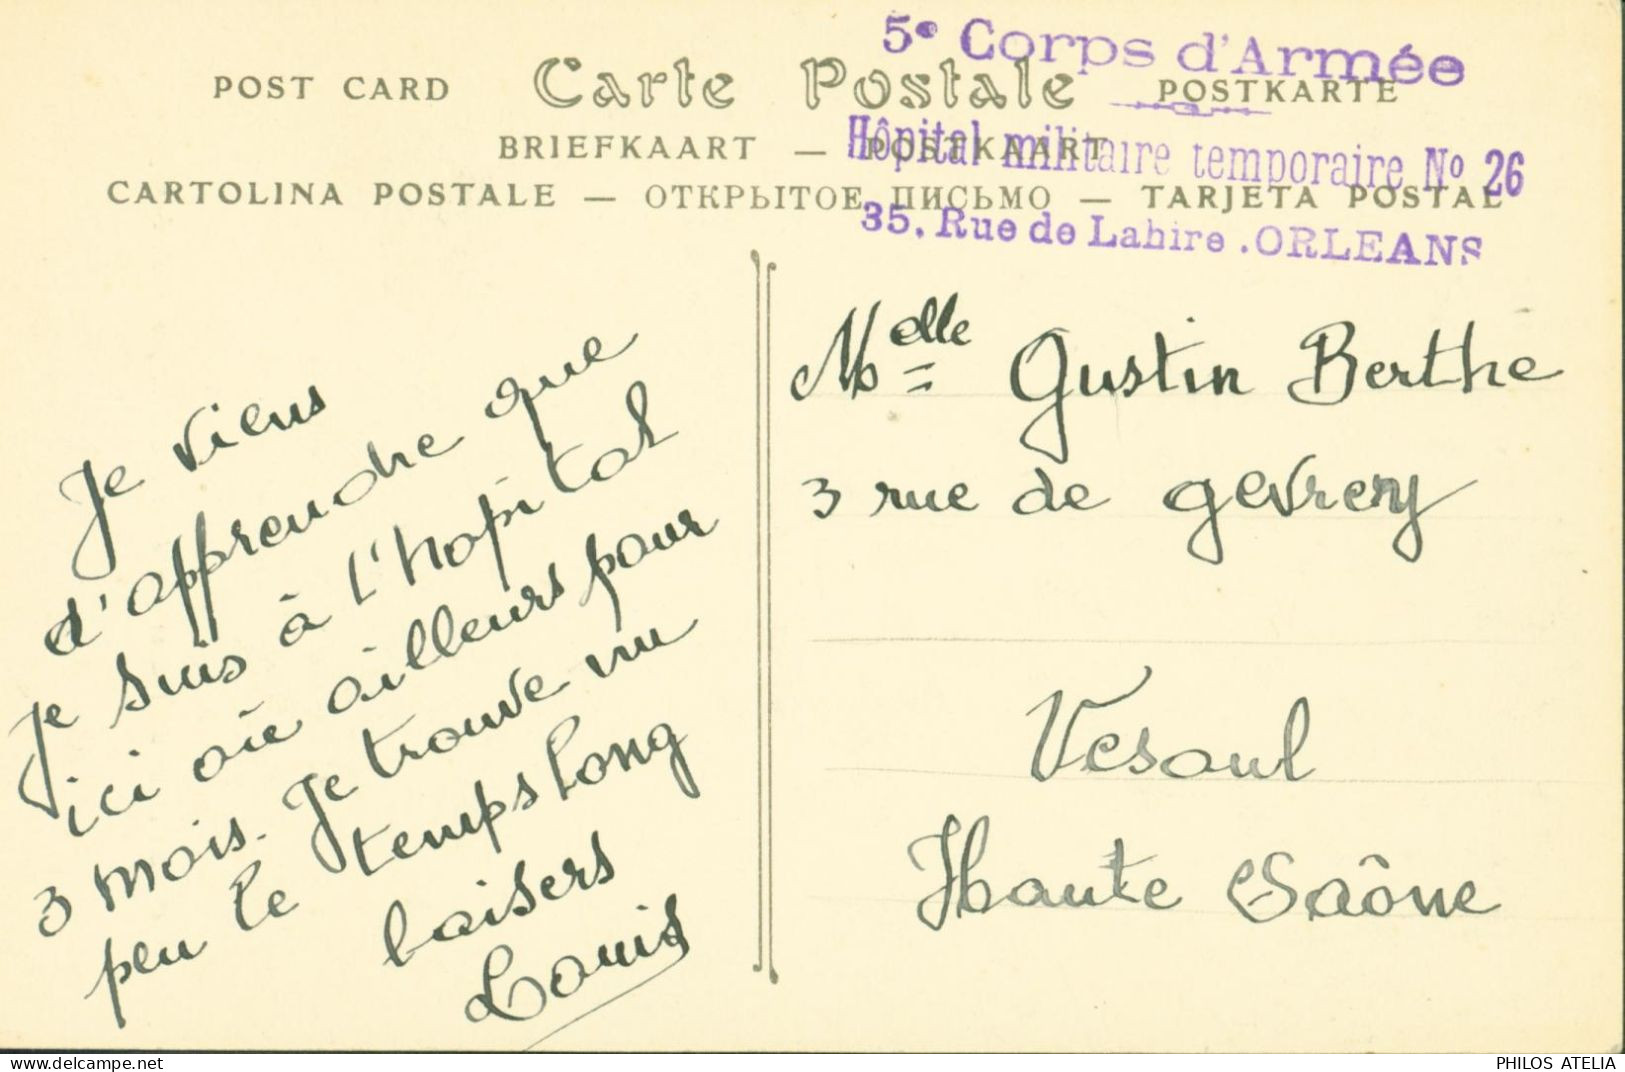 5e Corps d'Armée
POST CARD Carte Postale POSTKARTE
BRIEFKAART — POSTKAART
Hôpital militaire temporaire No 26
CARTOLINA POSTALE — ОТКРЫТОЕ ПИСЬМО — TARJETA POSTAL
35, Rue de Lahire . ORLEANS
Je viens
d'apprendre que
je suis à l'hopital
ici où ailleurs pour
3 mois. Je trouve un
peu le temps long
baisers
Louis
Melle Gustin Berthe
3 rue de gevrey
Vesoul
Haute Saône
PHILOS ATELIA